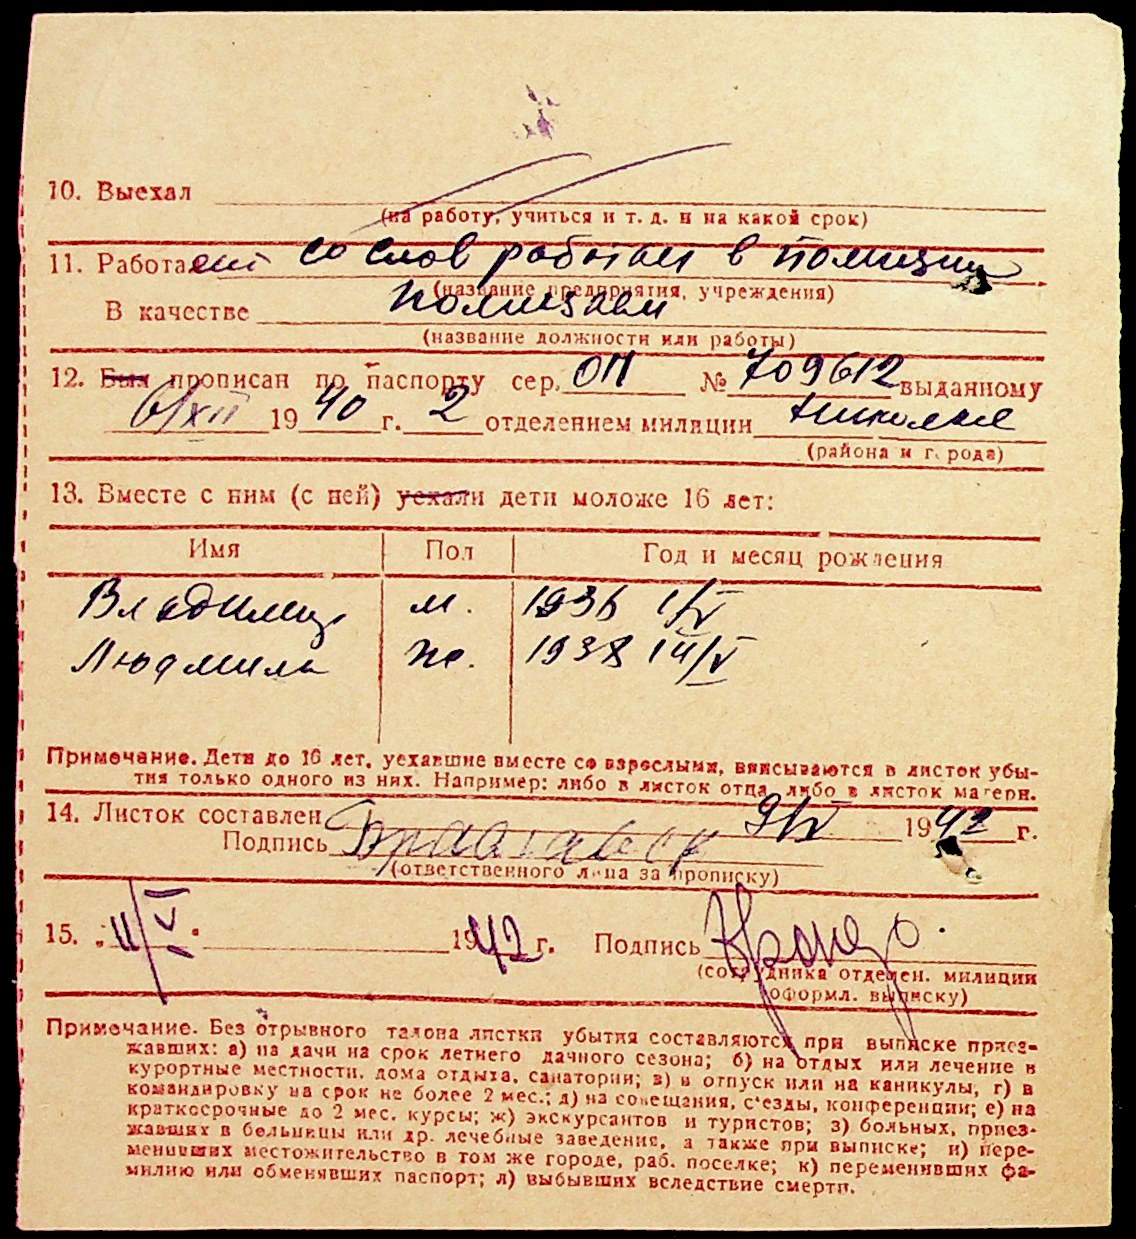 10. Выехал
(на работу, учиться и т. д. и на какой срок)
11. Работает со слов работал в полиции
(название предприятия, учреждения)
В качестве полицаем
(название должности или работы)
12. Был прописан по паспорту сер. ОП № 709612 выданному
6/XII 1940 г. 2 отделением милиции
(района и города)
13. Вместе с ним (с ней) уехали дети моложе 16 лет:
Имя Пол Год и месяц рождения
Владимир м. 1936 1/V
Людмила ж. 1938
Примечание. Дети до 16 лет, уехавшие вместе со взрослыми, вписываются в листок убы-
тия только одного из них. Например: либо в листок отца, либо в листок матери.
14. Листок составлен 9/V 1942 г.
Подпись
(ответственного лица за прописку)
15. „11/V" 1942 г. Подпись
(сотрудника отделен. милиции
оформл. выписку)
Примечание. Без отрывного талона листки убытия составляются при выписке приез-
жавших: а) на дачи на срок летнего дачного сезона; б) на отдых или лечение в
курортные местности, дома отдыха, санатории; в) в отпуск или на каникулы, г) в
командировку на срок не более 2 мес.; д) на совещания, с'езды, конференции; е) на
краткосрочные до 2 мес. курсы; ж) экскурсантов и туристов; з) больных, приез-
жавших в больницы или др. лечебные заведения, а также при выписке; и) пере-
менивших местожительство в том же городе, раб. поселке; к) переменивших фа-
милию или обменявших паспорт; л) выбывших вследствие смерти.